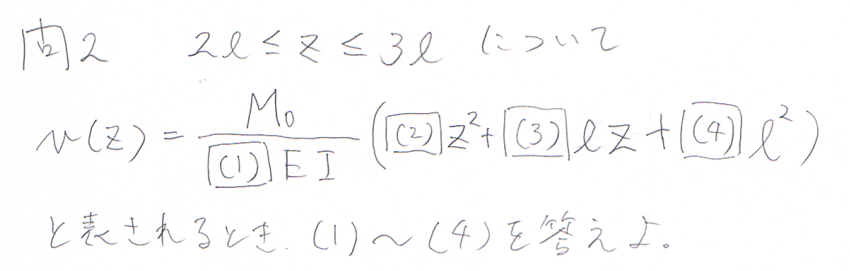 問2 2l≤z≤3l について
v(z) = M₀/((1)EI) ((2)z²+(3)lz+(4)l²)
と表されるとき、(1)～(4)を答えよ。